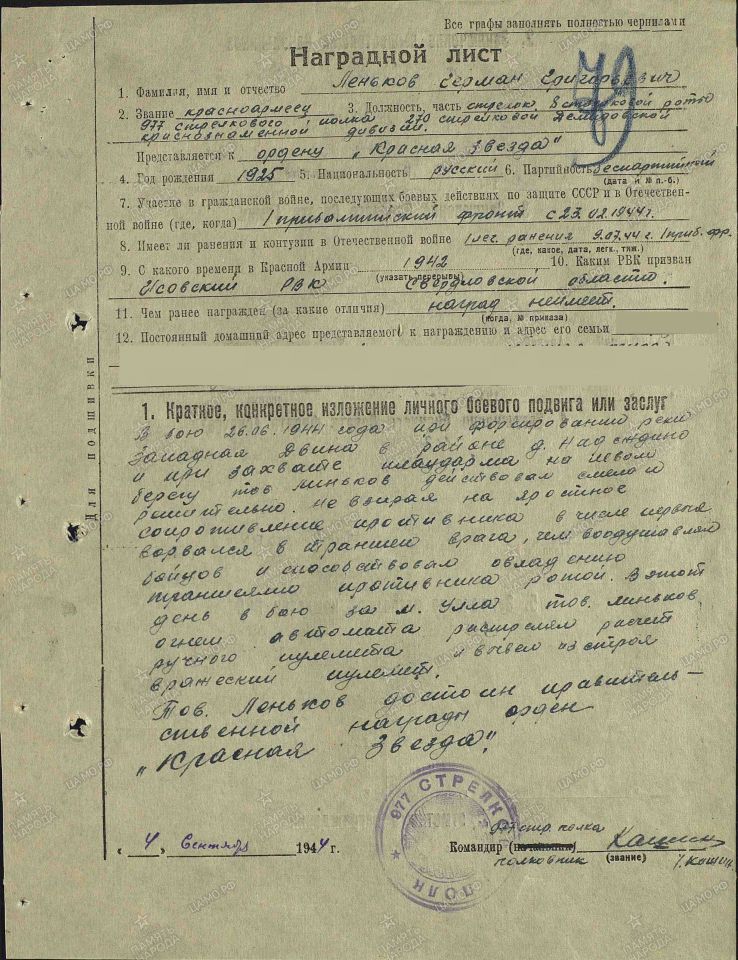 Все графы заполнять полностью чернилами
79
Наградной лист
1. Фамилия, имя и отчество Леньков Герман Григорьевич
2. Звание красноармеец 3. Должность, часть стрелок 8 стрелковой роты
977 стрелкового полка 270 стрелковой Демидовской
краснознаменной дивизии.
Представляется к ордену „Красная Звезда"
4. Год рождения 1925 5. Национальность русский 6. Партийность беспартийный
(дата и № п.-б.)
7. Участие в гражданской войне, последующих боевых действиях по защите СССР и в Отечествен-
ной войне (где, когда) 1 прибалтийский фронт с 23.02.1944г.
8. Имеет ли ранения и контузии в Отечественной войне 1 лег. ранение 9.07.44г. 1 приб. фр.
(где, какое, дата, легк., тяж.)
9. С какого времени в Красной Армии 1942 10. Каким РВК призван
(указать перерывы)
Исовский РВК Свердловской области.
11. Чем ранее награжден (за какие отличия) наград неимеет.
(когда, № приказа)
12. Постоянный домашний адрес представляемого к награждению и адрес его семьи
Для подшивки
1. Краткое, конкретное изложение личного боевого подвига или заслуг
В бою 26.06.1944 года при форсировании реки
Западная Двина в районе д. Надеждино
и при захвате плацдарма на левом
берегу тов. Леньков действовал смело и
решительно. Не взирая на яростное
сопротивление противника в числе первых
ворвался в траншеи врага, чем воодушевлял
бойцов и способствовал овладению
траншеями противника ротой. В этот
день в бою за м. Улла тов. Леньков
огнем автомата расстрелял расчет
ручного пулемета и вывел из строя
вражеский пулемет.
Тов. Леньков достоин правитель-
ственной награды орден
„Красная Звезда".
977 СТРЕЛКО
ПОЛК
977 стр. полка
„ 4 " Сентября 1944 г. Командир (начальник) Кашин
полковник (звание) /. Кашин